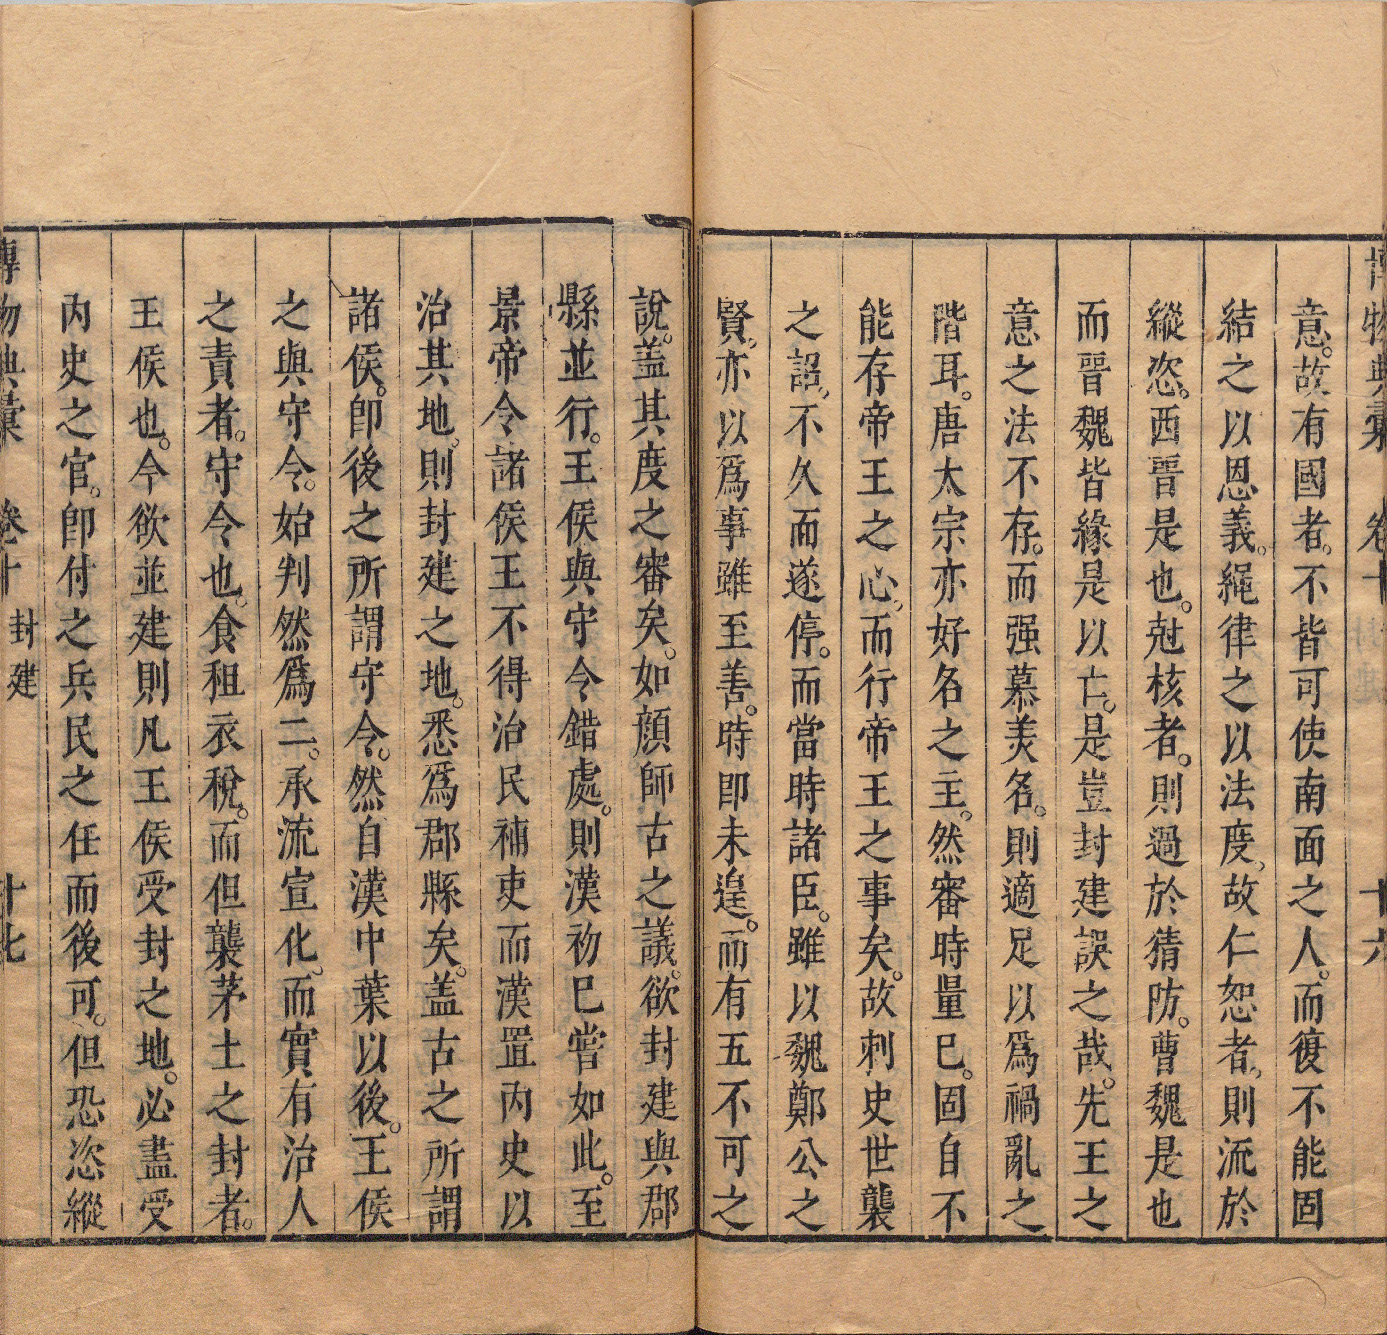 博物典彙 卷十 十六
意。故有國者。不皆可使南面之人。而復不能固
結之以恩義。繩律之以法度。故仁恕者。則流於
縱恣。西晋是也。尅核者。則過於猜防。曹魏是也
而晋魏皆緣是以亡。是豈封建誤之哉。先王之
意之法不存。而强慕美名。則適足以爲禍亂之
階耳。唐太宗亦好名之主。然審時量已。固自不
能存帝王之心。而行帝王之事矣。故刺史世襲
之詔。不久而遂停。而當時諸臣。雖以魏鄭公之
賢。亦以爲事雖至善。時即未遑。而有五不可之
說。盖其度之審矣。如顔師古之議。欲封建與郡
縣並行。王侯與守令錯處。則漢初已嘗如此。至
景帝令諸侯王不得治民補吏而漢置內史以
治其地。則封建之地。悉爲郡縣矣。盖古之所謂
諸侯。卽後之所謂守令。然自漢中葉以後。王侯
之與守令。始判然爲二。承流宣化。而實有治人
之責者。守令也。食租衣稅。而但襲茅土之封者。
王侯也。今欲並建則凡王侯受封之地。必盡受
內史之官。卽付之兵民之任而後可。但恐恣縱
博物典彙 卷十 封建 十七